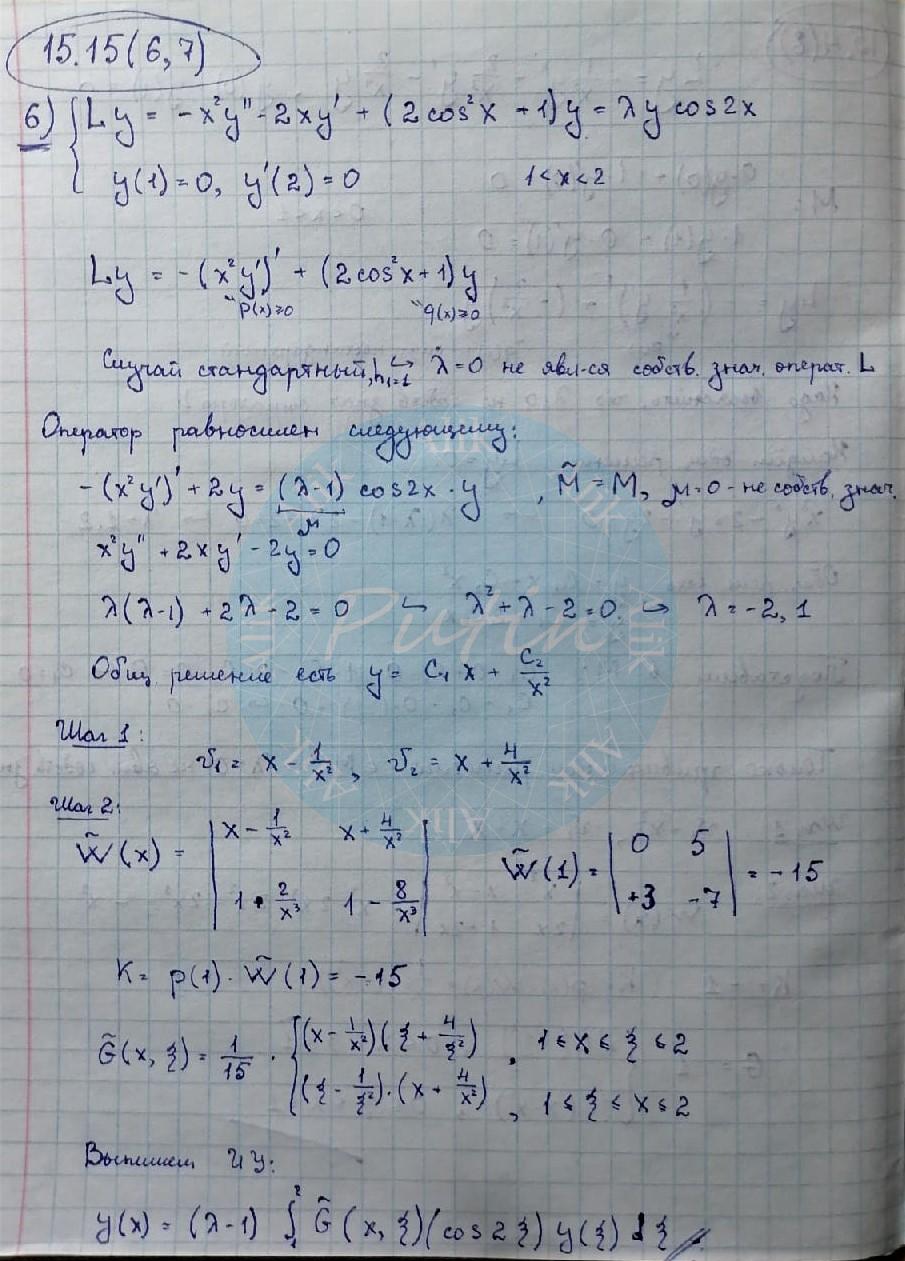 15.15(6,7)
6) { Ly = -x²y'' - 2xy' + (2cos²x + 1)y = λy cos2x
y(1)=0, y'(2)=0   1<x<2
Ly = -(x²y')' + (2cos²x+1)y
"p(x)≥0   "q(x)≥0
Случай стандартный, h₁=1 ↪ λ=0 не явл-ся собств. знач. операт. L
Оператор равносилен следующему:
-(x²y')' + 2y = (λ-1) cos2x · y , M̃ = M, μ=0 - не собств. знач.
μ
x²y'' + 2xy' - 2y = 0
λ(λ-1) + 2λ - 2 = 0 ↪ λ²+λ-2=0 → λ = -2, 1
Общ. решение есть y = C₁ x + C₂/x²
Шаг 1:
v₁ = x - 1/x², v₂ = x + 4/x²
Шаг 2:
W̃(x) = | x - 1/x²   x + 4/x² |   W̃(1) = | 0   5 | = -15
| 1 + 2/x³   1 - 8/x³ |   | +3   -7 |
K = p(1) · W̃(1) = -15
G̃(x, ξ) = 1/15 · { (x - 1/x²)(ξ + 4/ξ²) , 1 ≤ x ≤ ξ ≤ 2
(ξ - 1/ξ²)·(x + 4/x²) , 1 ≤ ξ ≤ x ≤ 2
Выпишем ИУ:
y(x) = (λ-1) ∫₁² G̃(x, ξ)(cos2ξ) y(ξ) dξ
Purin
Alik
Alik
Alik
Alik
Alik
Alik
Alik
Alik
Alik
Alik